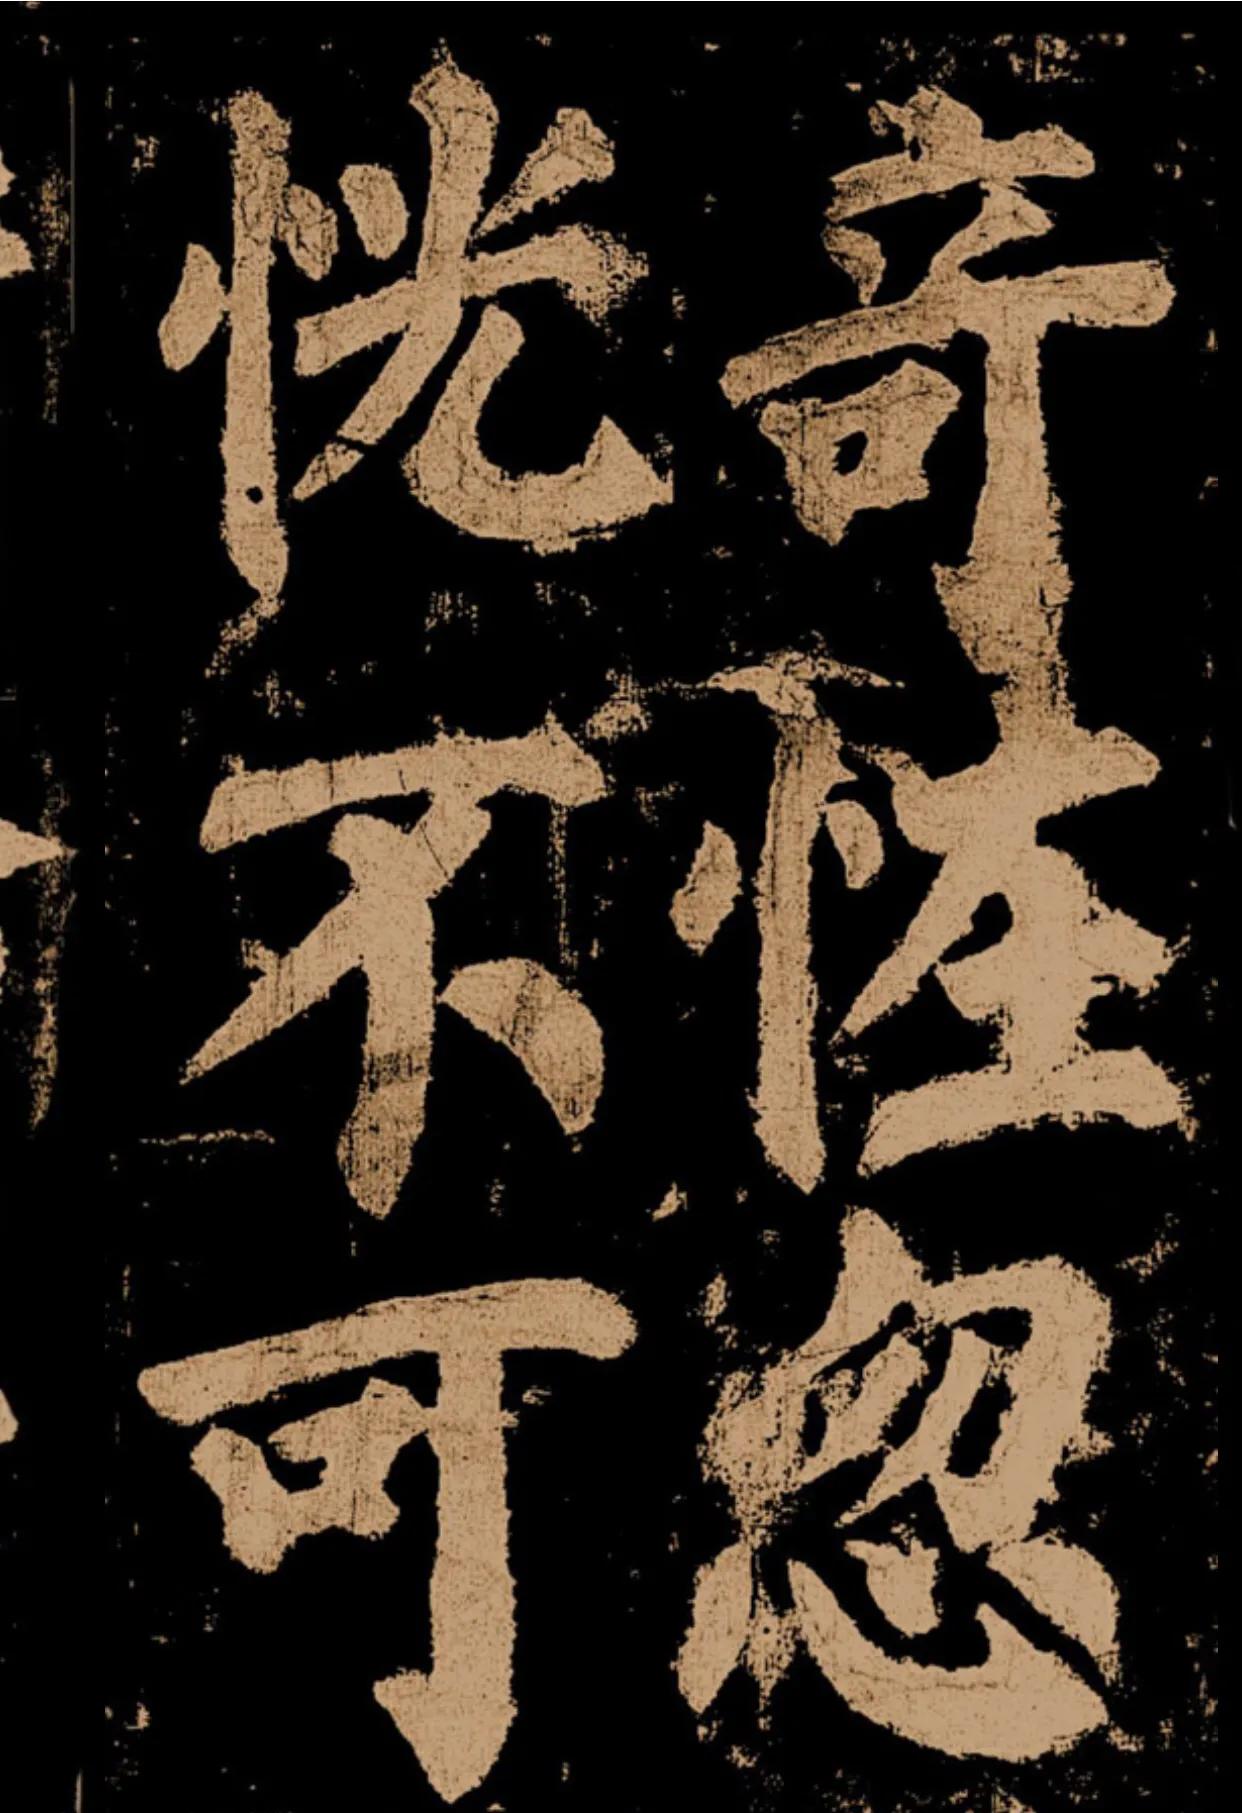 奇怪忽
恍不可